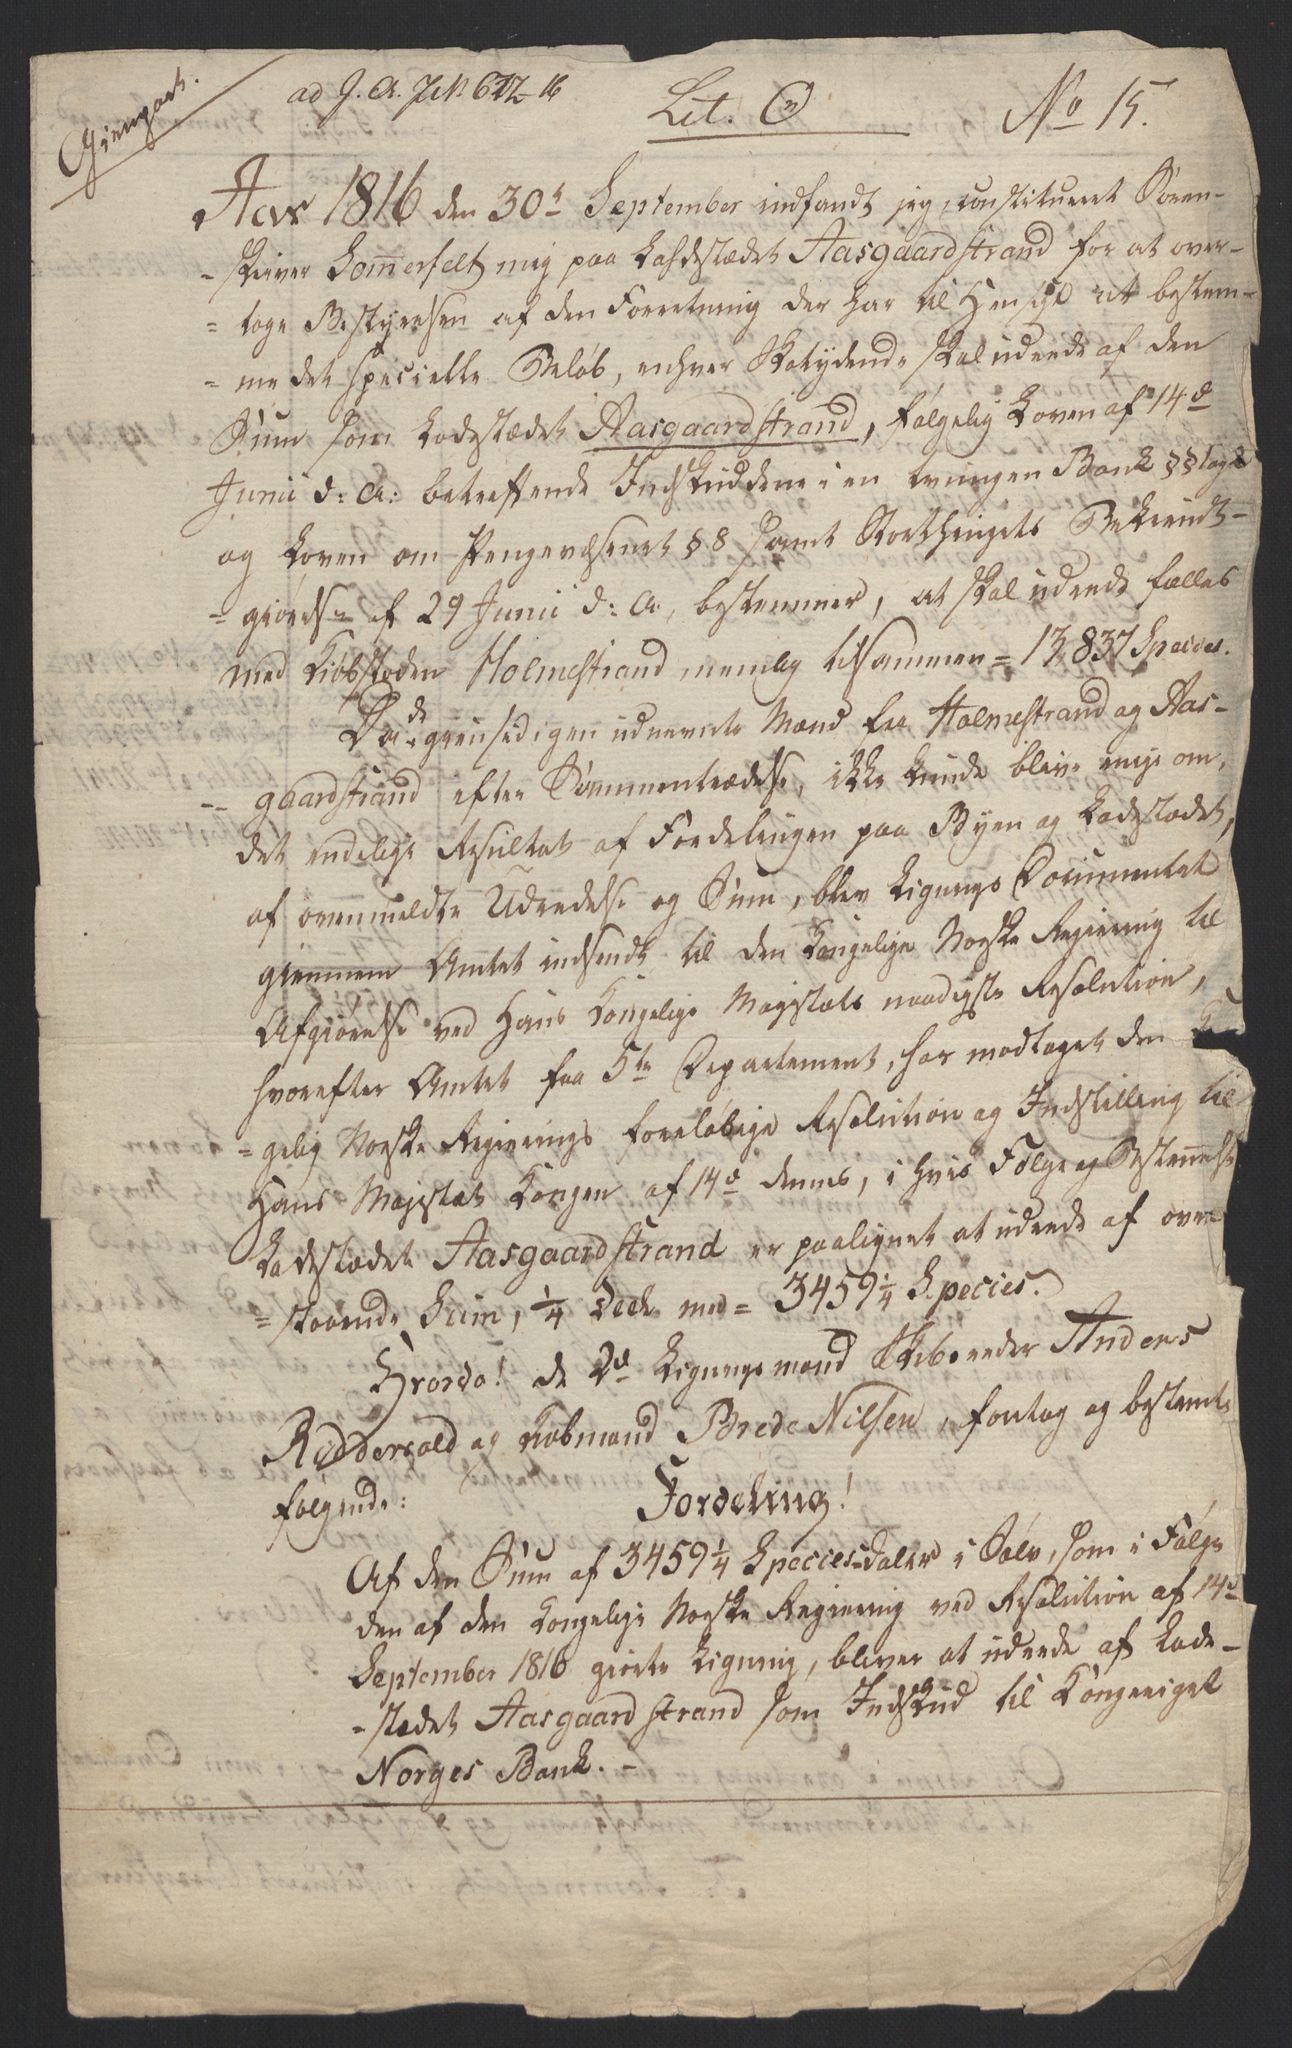 Gienpart.
ad J. A. J. N. 612-16
Lit. C
No 15.
Aar 1816 den 30t September indfandt jeg, constitueret Soren-
-skriver Sommerfelt mig paa Ladestædet Aasgaardstrand for at over-
= tage Bestyrelsen af den Forretning der har til Hensigt at bestem-
= me det specielle Beløb, enhver Skatydende skal udrede af den
Sum som Ladestædet Aasgaardstrand, følgelig Loven af 14de
Junii d: A: betreffende Indskuddene i en tvungen Bank §§
og Loven om Pengevæsenet § 8 samt Storthingets Bekiendt-
= giørelse af 29 Junii d: A, bestemmer, at skal udrede fælles
med Kiøbstæden Holmestrand nemlig tilsammen = 13,837 Species.
Da de giensedigen udnævnte Mænd fra Holmestrand og Aas-
-- gaardstrand efter Sammentrædelse, ikke kunde blive enige om,
det endelige Resultat af Fordelingen paa Byen og Ladestædet,
af ovenmeldte Udredelse og Sum, blev Lignings Documentet
giennem Amtet indsendt til den Kongelige Norske Regiering til
Afgiørelse ved Hans Kongelige Majestæts naadigste Resolution,
hvorefter Amtet fra 5te Departement, har modtaget den
= gelig Norske Regierings foreløbige Resolution og Indstilling til
Hans Majestæt Kongen af 14de dennes, i hvis Følge og Bestemmelse
Ladestædet Aasgaardstrand er paalignet at udrede af oven-
= staaende Sum, 1/4 Deel med = 3459 1/4 Species.
Hvorpaa! de 2de Ligningsmænd Skibsreder Anders
Riddervold og Kiøbmand Brede Nilsen, foretog og bestemte
følgende:
Fordeling!
Af den Sum af 3459 1/4 Speciesdaler i Sølv, som i Følge
den af den Kongelige Norske Regiering ved Resolution af 14de
September 1816 giorte Ligning, bliver at udrede af Lade-
-stædet Aasgaardstrand som Indskud til Kongeriget
Norges Bank. -